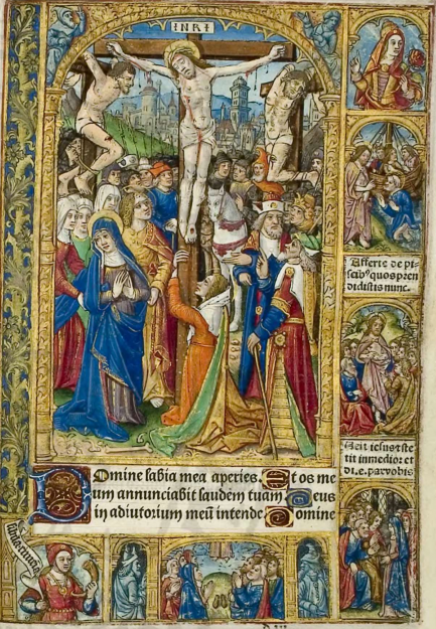 INRI
Afferte de pi-
scibꝰ quos pren
didistis nunc.
Uenit iesus et ste
tit in medio: et
di.e. pax vobis
Domine labia mea aperies. Et os me
um annunciabit laudem tuam. Deus
in adiutorium meū intende. Domine